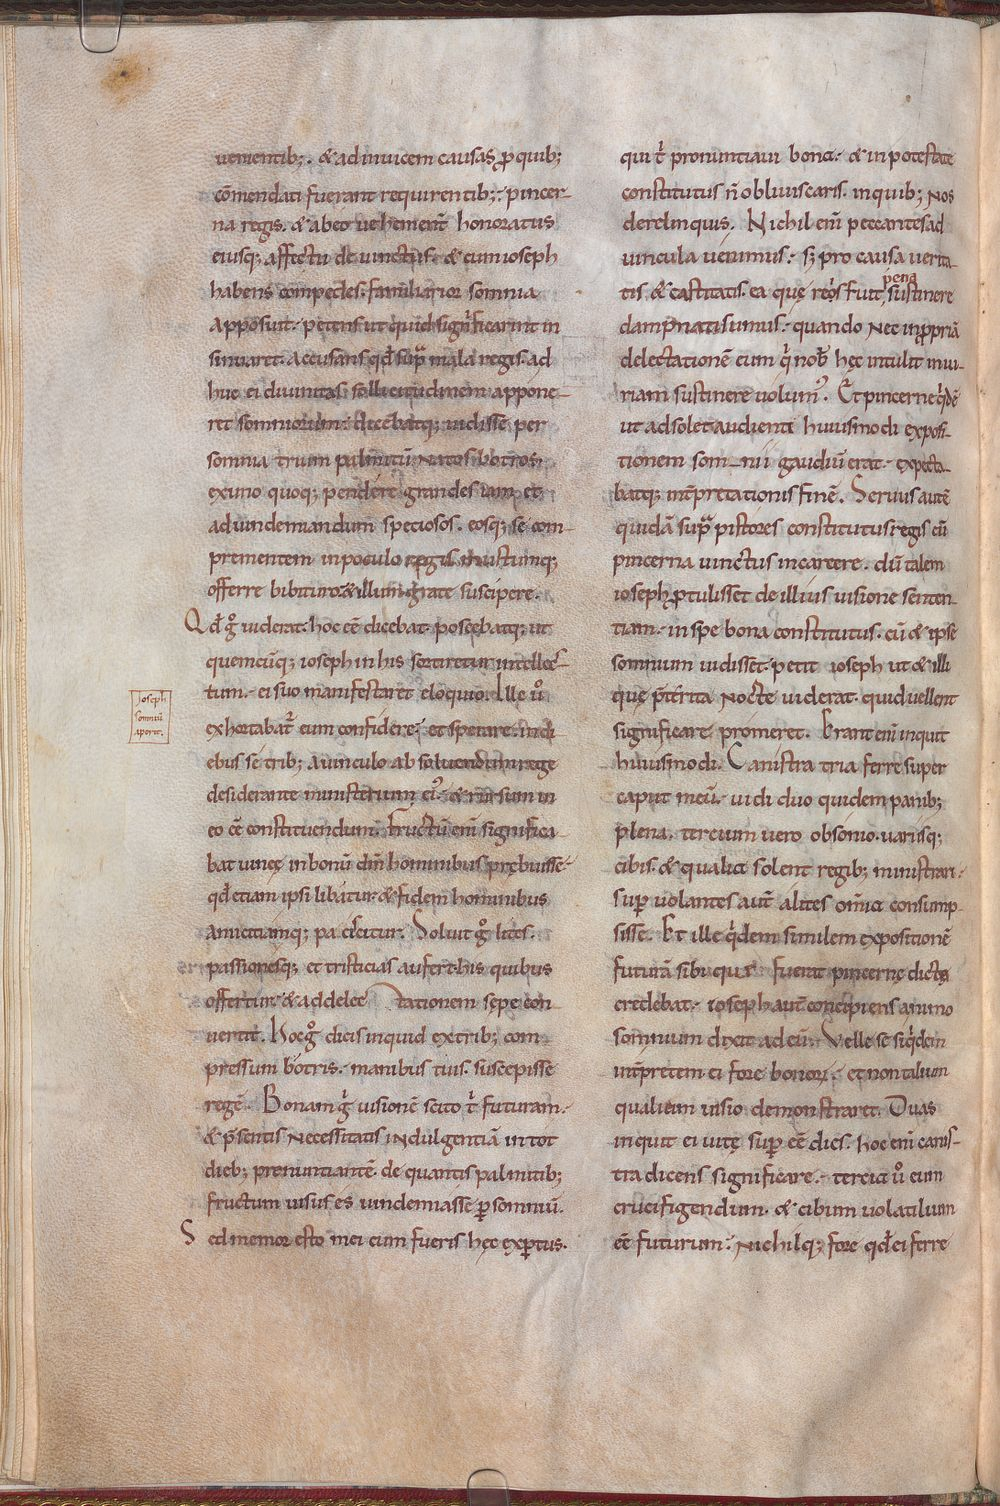 uenientib;. & adinuicem causas ꝓ quib;
cōmendati fuerant requirentib;. pincer-
na regis. & abeo uehementˉ honoratus
eiusq; affectu deuinctus. & cum ioseph
habens compedes. familiarior somnia
apposuit. petens ut quid significarint in
sinuaret. accusans qđ sup̄ mala regis. ad
huc ei diuinitas sollicitudinem appone-
ret somniorum. dicebatq; uidisse per
somnia trium palmitū natos botros.
exuno quoq; pendere grandes iam et
aduindemiandum speciosos. eosq; se com-
prementem inpoculo regis mustumq;
offerre bibituro & illum grate suscipere.
Qđ g̊ uiderat. hoc eē dicebat. poscebatq; ut
quemcūq; ioseph in his sortiretur intellec-
tum. ei suo manifestaret eloquio. Ille ů
exhortabat᷑ eum confidere. et sperare. indi
ebus se trib; auinculo absoluendum rege
desiderante ministerium ei᾽. & rursum in
eo eē constituendum. Fructū enī significa
bat uineę inbonū dm̄ hominibus prębuisse
qđ etiam ipsi libatur & fidem hominibus
amicitiamq; paciscitur. Soluit g̊ lites.
passionesq; et tristicias aufert his quibus
offertur. & addelec tationem sepe con
uertit. Hoc g̊ dicis inquid extrib; com
pressum botris. manibus tuis. suscepisse
regē. Bonam g̊ uisionē scito t̄ futuram.
& p̄sentis necessitatis indulgentiā in tot
dieb; prenuntiantē. de quantis palmitib;
fructum uisus es uindemiasse ꝑ somniū.
Sed memor esto mei cum fueris hęc exꝑtus.
Joseph
somniū
aperit.
qui t̄ pronuntiaui bona. & in potestate
constitutus n̄ obliuiscaris. inquib; nos
derelinquis. Nichil enī peccantes ad
uincula uenimus. sꝫ pro causa uerita-
tis & castitatis. ea quę reos fuit, pena sustinere
dampnati sumus. quando nec inꝓpriā
delectationē eum q̇ nob̄ hęc intulit iniu-
riam sustinere uolum᾽. Et pincerne q̇dē
ut adsolet audienti huiusmodi exposi-
tionem som_nii gaudiū erat. expecta-
batq; int̄pretationis finē. Seruus autē
quidā sup̄ pistores constitutus regis cū
pincerna uinctus incarcere. dū talem
ioseph ꝓtulisset de illius uisione senten-
tiam. in spe bona constitutus. cū & ipse
somnium uidisset. petit ioseph ut & illi
quę p̄terita nocte uiderat. quid uellent
significare promeret. Erant enī inquit
huiusmodi. Canistra tria ferre super
caput meū. uidi duo quidem panib;
plena. tercium uero obsonio. uariisq;
cibis. & qualia solent regib; ministrari.
sup̄ uolantes aut̄ alites omnia consump-
sisse. Et ille q̇dem similem expositionē
futurā sibi quę fuerat pincernę dicta
credebat. ioseph aut̄ concipiens animo
somnium dixit ad eū. Velle se siq̇dem
int̄pretem ei fore bonorū. et non talium
qualium uisio demonstraret. Duas
inquit ei uitę sup̄ eē dies. hoc enī canis-
tra dicens significare. tercia ů eum
crucifigendum. & cibum uolatilium
eē futurum. nichilq; fore qđ ei ferre